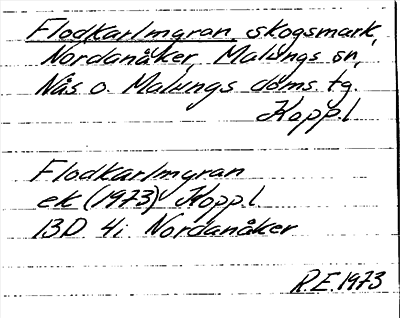 Flodkarlmyran, skogsmark,
Nordanåker, Malungs sn,
Nås o. Malungs doms. tg.
Kopp.l
Flodkarlmyran
ek (1973) Kopp.l
13D 4i Nordanåker
R.E. 1973